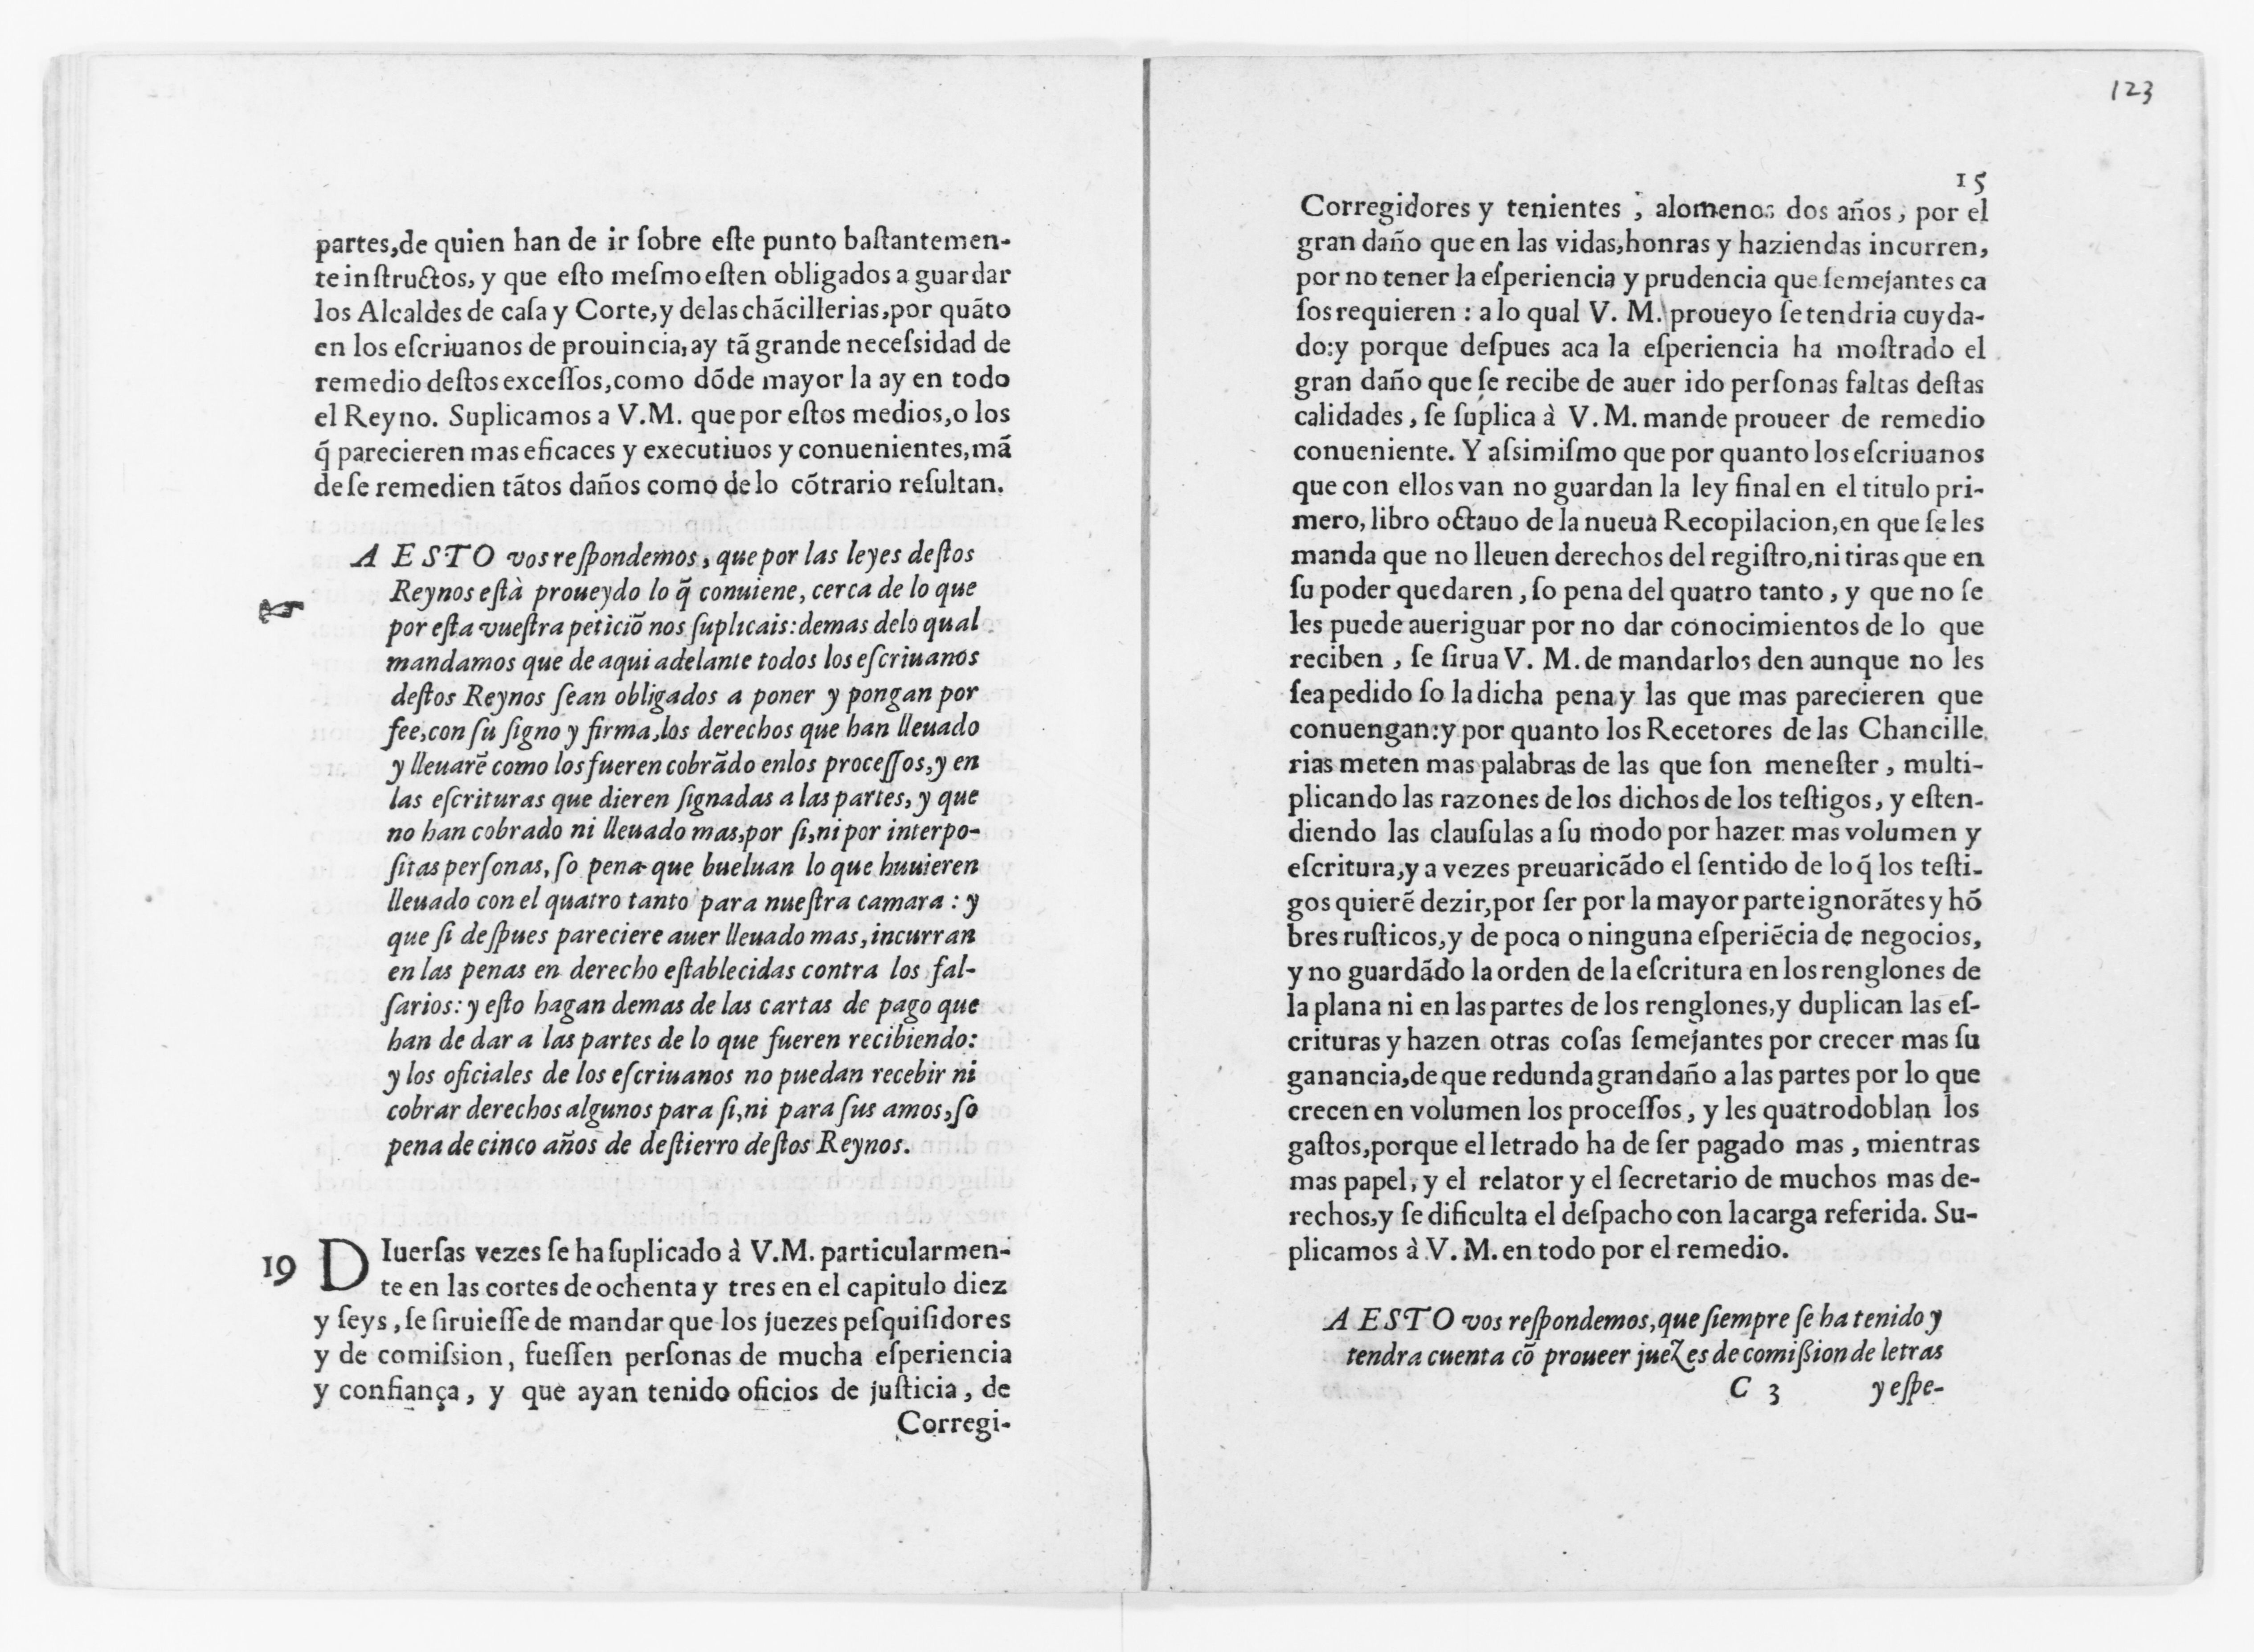 partes,de quien han de ir ſobre eſte punto baſtantemen-
te inſtructos, y que eſto meſmo eſten obligados a guardar
los Alcaldes de caſa y Corte,y delas chãcillerias,por quãto
en los eſcriuanos de prouincia,ay tã grande neceſsidad de
remedio deſtos exceſſos,como dõde mayor la ay en todo
el Reyno. Suplicamos a V.M. que por eſtos medios,o los
q̃ parecieren mas eficaces y executiuos y conuenientes,mã
de ſe remedien tãtos daños como de lo cõtrario reſultan.
A ESTO vos reſpondemos, que por las leyes deſtos
Reynos eſtà proueydo lo q̃ conuiene, cerca de lo que
☞
por eſta vueſtra peticiõ nos ſuplicais: demas delo qual
mandamos que de aqui adelante todos los eſcriuanos
deſtos Reynos ſean obligados a poner y pongan por
fee,con ſu ſigno y firma,los derechos que han lleuado
y lleuarẽ como los fueren cobrãdo enlos proceſſos,y en
las eſcrituras que dieren ſignadas a las partes, y que
no han cobrado ni lleuado mas,por ſi,ni por interpo-
ſitas perſonas, ſo pena que bueluan lo que huuieren
lleuado con el quatro tanto para nueſtra camara : y
que ſi deſpues pareciere auer lleuado mas, incurran
en las penas en derecho eſtablecidas contra los fal-
ſarios: y eſto hagan demas de las cartas de pago que
han de dar a las partes de lo que fueren recibiendo:
y los oficiales de los eſcriuanos no puedan recebir ni
cobrar derechos algunos para ſi,ni para ſus amos,ſo
pena de cinco años de deſtierro deſtos Reynos.
19 DIuerſas vezes ſe ha ſuplicado à V.M. particularmen-
te en las cortes de ochenta y tres en el capitulo diez
y ſeys, ſe ſiruieſſe de mandar que los juezes peſquiſidores
y de comiſsion, fueſſen perſonas de mucha eſperiencia
y confiança, y que ayan tenido oficios de juſticia, de
Corregi-
123
15
Corregidores y tenientes , alomenos dos años, por el
gran daño que en las vidas,honras y haziendas incurren,
por no tener la eſperiencia y prudencia que ſemejantes ca
ſos requieren : a lo qual V. M. proueyo ſe tendria cuyda-
do:y porque deſpues aca la eſperiencia ha moſtrado el
gran daño que ſe recibe de auer ido perſonas faltas deſtas
calidades, ſe ſuplica à V. M. mande proueer de remedio
conueniente. Y aſsimiſmo que por quanto los eſcriuanos
que con ellos van no guardan la ley final en el titulo pri-
mero, libro octauo de la nueua Recopilacion,en que ſe les
manda que no lleuen derechos del regiſtro,ni tiras que en
ſu poder quedaren, ſo pena del quatro tanto, y que no ſe
les puede aueriguar por no dar conocimientos de lo que
reciben , ſe ſirua V. M. de mandarlos den aunque no les
ſea pedido ſo la dicha pena y las que mas parecieren que
conuengan:y por quanto los Recetores de las Chancille
rias meten mas palabras de las que ſon meneſter , multi-
plicando las razones de los dichos de los teſtigos, y eſten-
diendo las clauſulas a ſu modo por hazer mas volumen y
eſcritura,y a vezes preuaricãdo el ſentido de lo q̃ los teſti-
gos quierẽ dezir,por ſer por la mayor parte ignorãtes y hõ
bres ruſticos,y de poca o ninguna eſperiẽcia de negocios,
y no guardãdo la orden de la eſcritura en los renglones de
la plana ni en las partes de los renglones,y duplican las eſ-
crituras y hazen otras coſas ſemejantes por crecer mas ſu
ganancia,de que redunda gran daño a las partes por lo que
crecen en volumen los proceſſos, y les quatrodoblan los
gaſtos,porque el letrado ha de ſer pagado mas , mientras
mas papel, y el relator y el ſecretario de muchos mas de-
rechos,y ſe dificulta el deſpacho con la carga referida. Su-
plicamos à V. M. en todo por el remedio.
A ESTO vos reſpondemos,que ſiempre ſe ha tenido y
tendra cuenta cõ proueer juezes de comiſsion de letras
C 3 y eſpe-